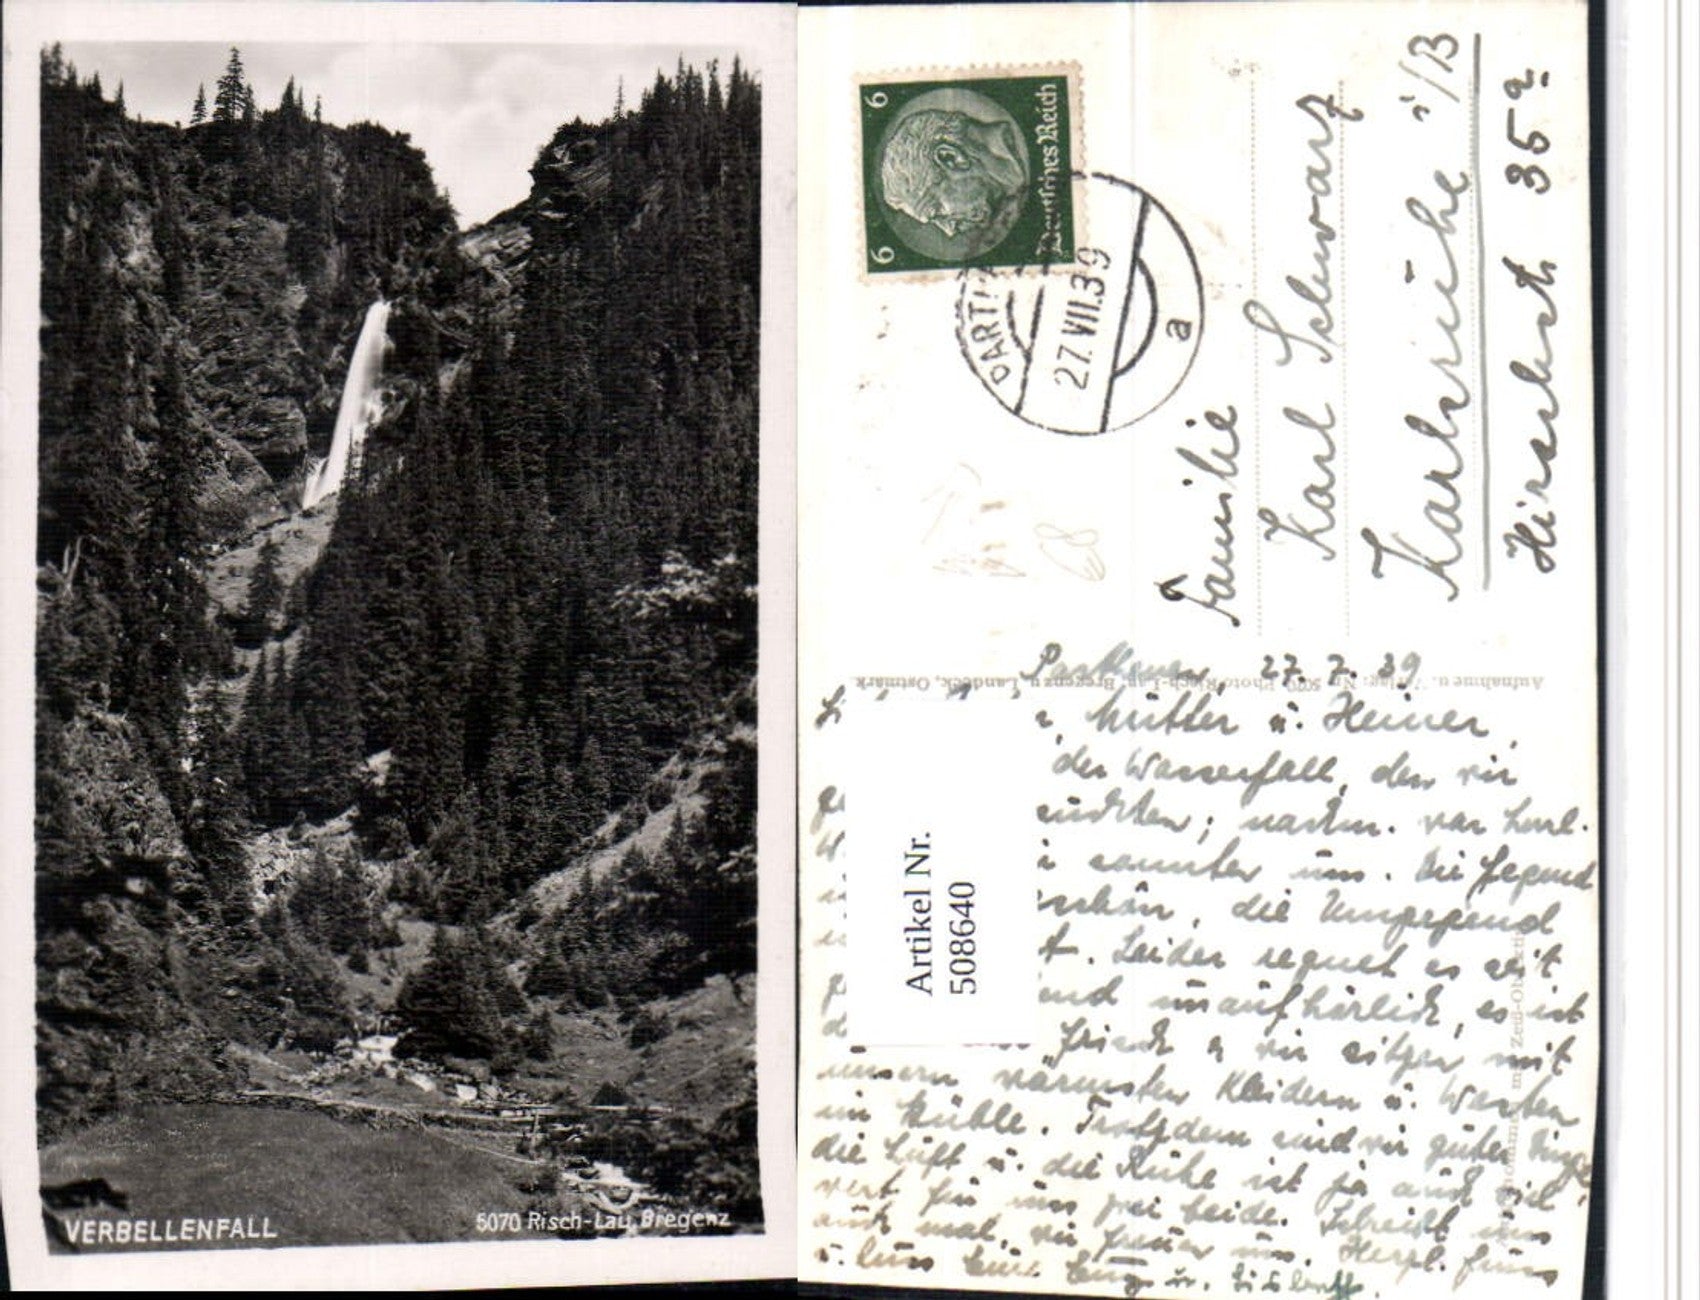 VERBELLENFALL
5070 Risch-Lau, Bregenz
6
6
Deutsches Reich
27.VII.39
a
68
Familie
Karl Schwarz
Karlsruhe i/B
Hirschstr 35a
Aufnahme u. Verlag: Nr. 5070 Photo Risch-Lau, Bregenz u. Landeck, Ostmark
Parthenen, 27. 7. 39
Mutter u. Heiner,
der Wasserfall, den wir
; nachm. war herrl.
sonnten uns. Die Gegend
schön, die Umgegend
Leider regnet es seit
unaufhörlich, es ist
"frisch" u wir sitzen mit
unsern wärmsten Kleidern u. warten
im Stüble. Trotzdem sind wir guter Dinge,
die Luft u. die Ruhe ist ja auch viel
wert für uns zwei beide. Schreibt uns
auch mal, wir freuen uns. Herzl. Gruss
u. Kuss Eure
Artikel Nr.
508640